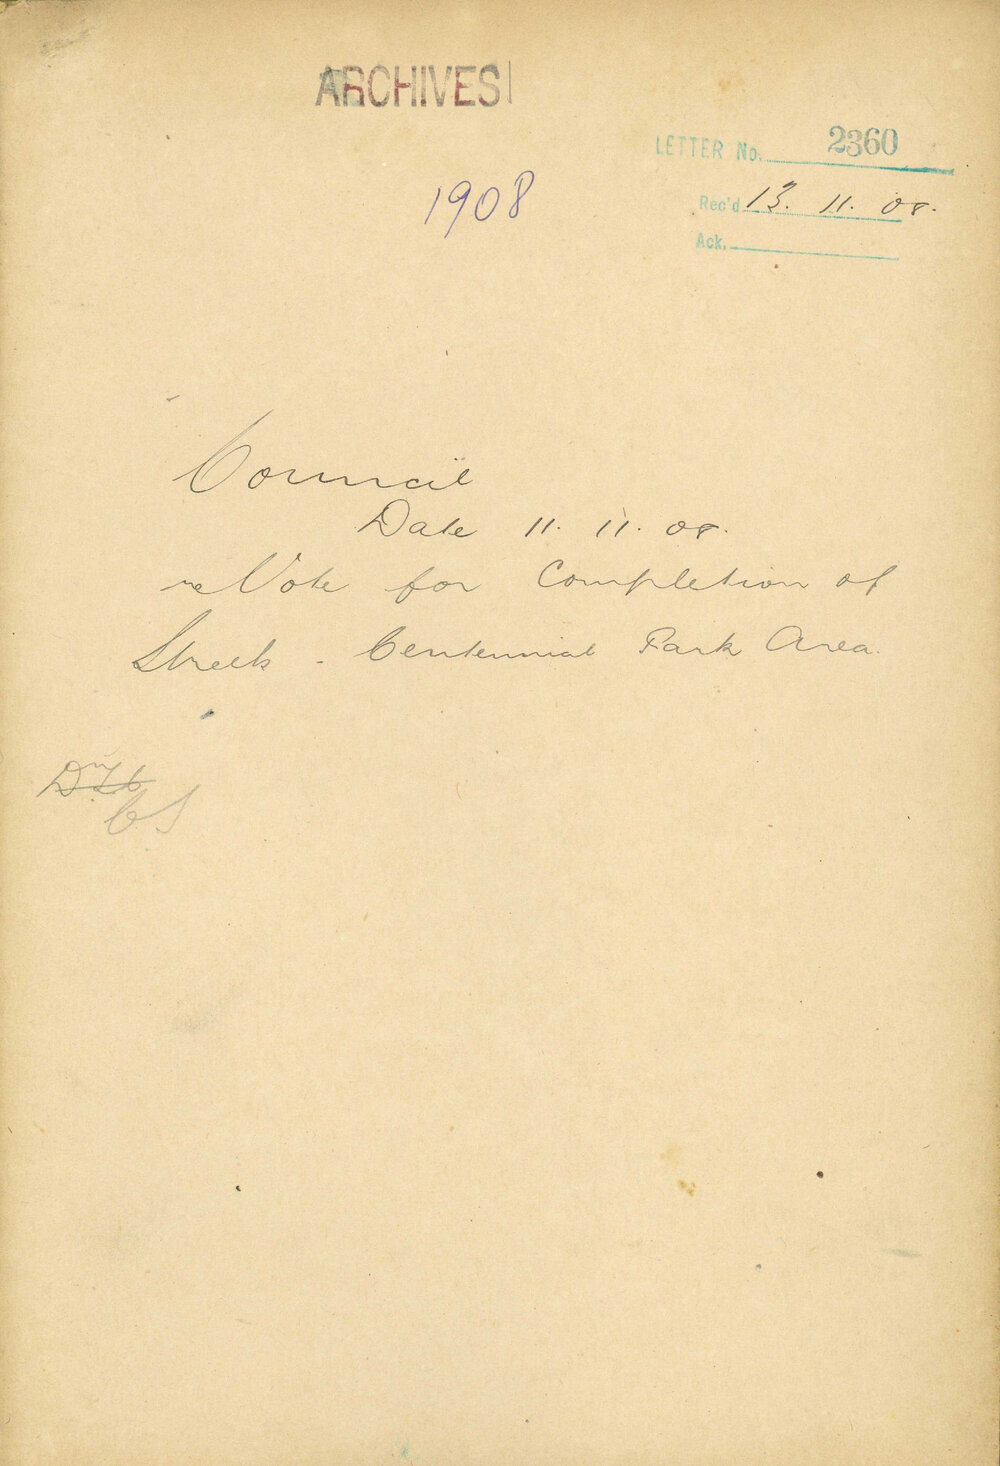 ARCHIVES
LETTER No. 2360
1908
Rec'd 13. 11. 08.
Ack.
Council
Date 11. 11. 08.
re Vote for Completion of
Streets - Centennial Park Area.
CS